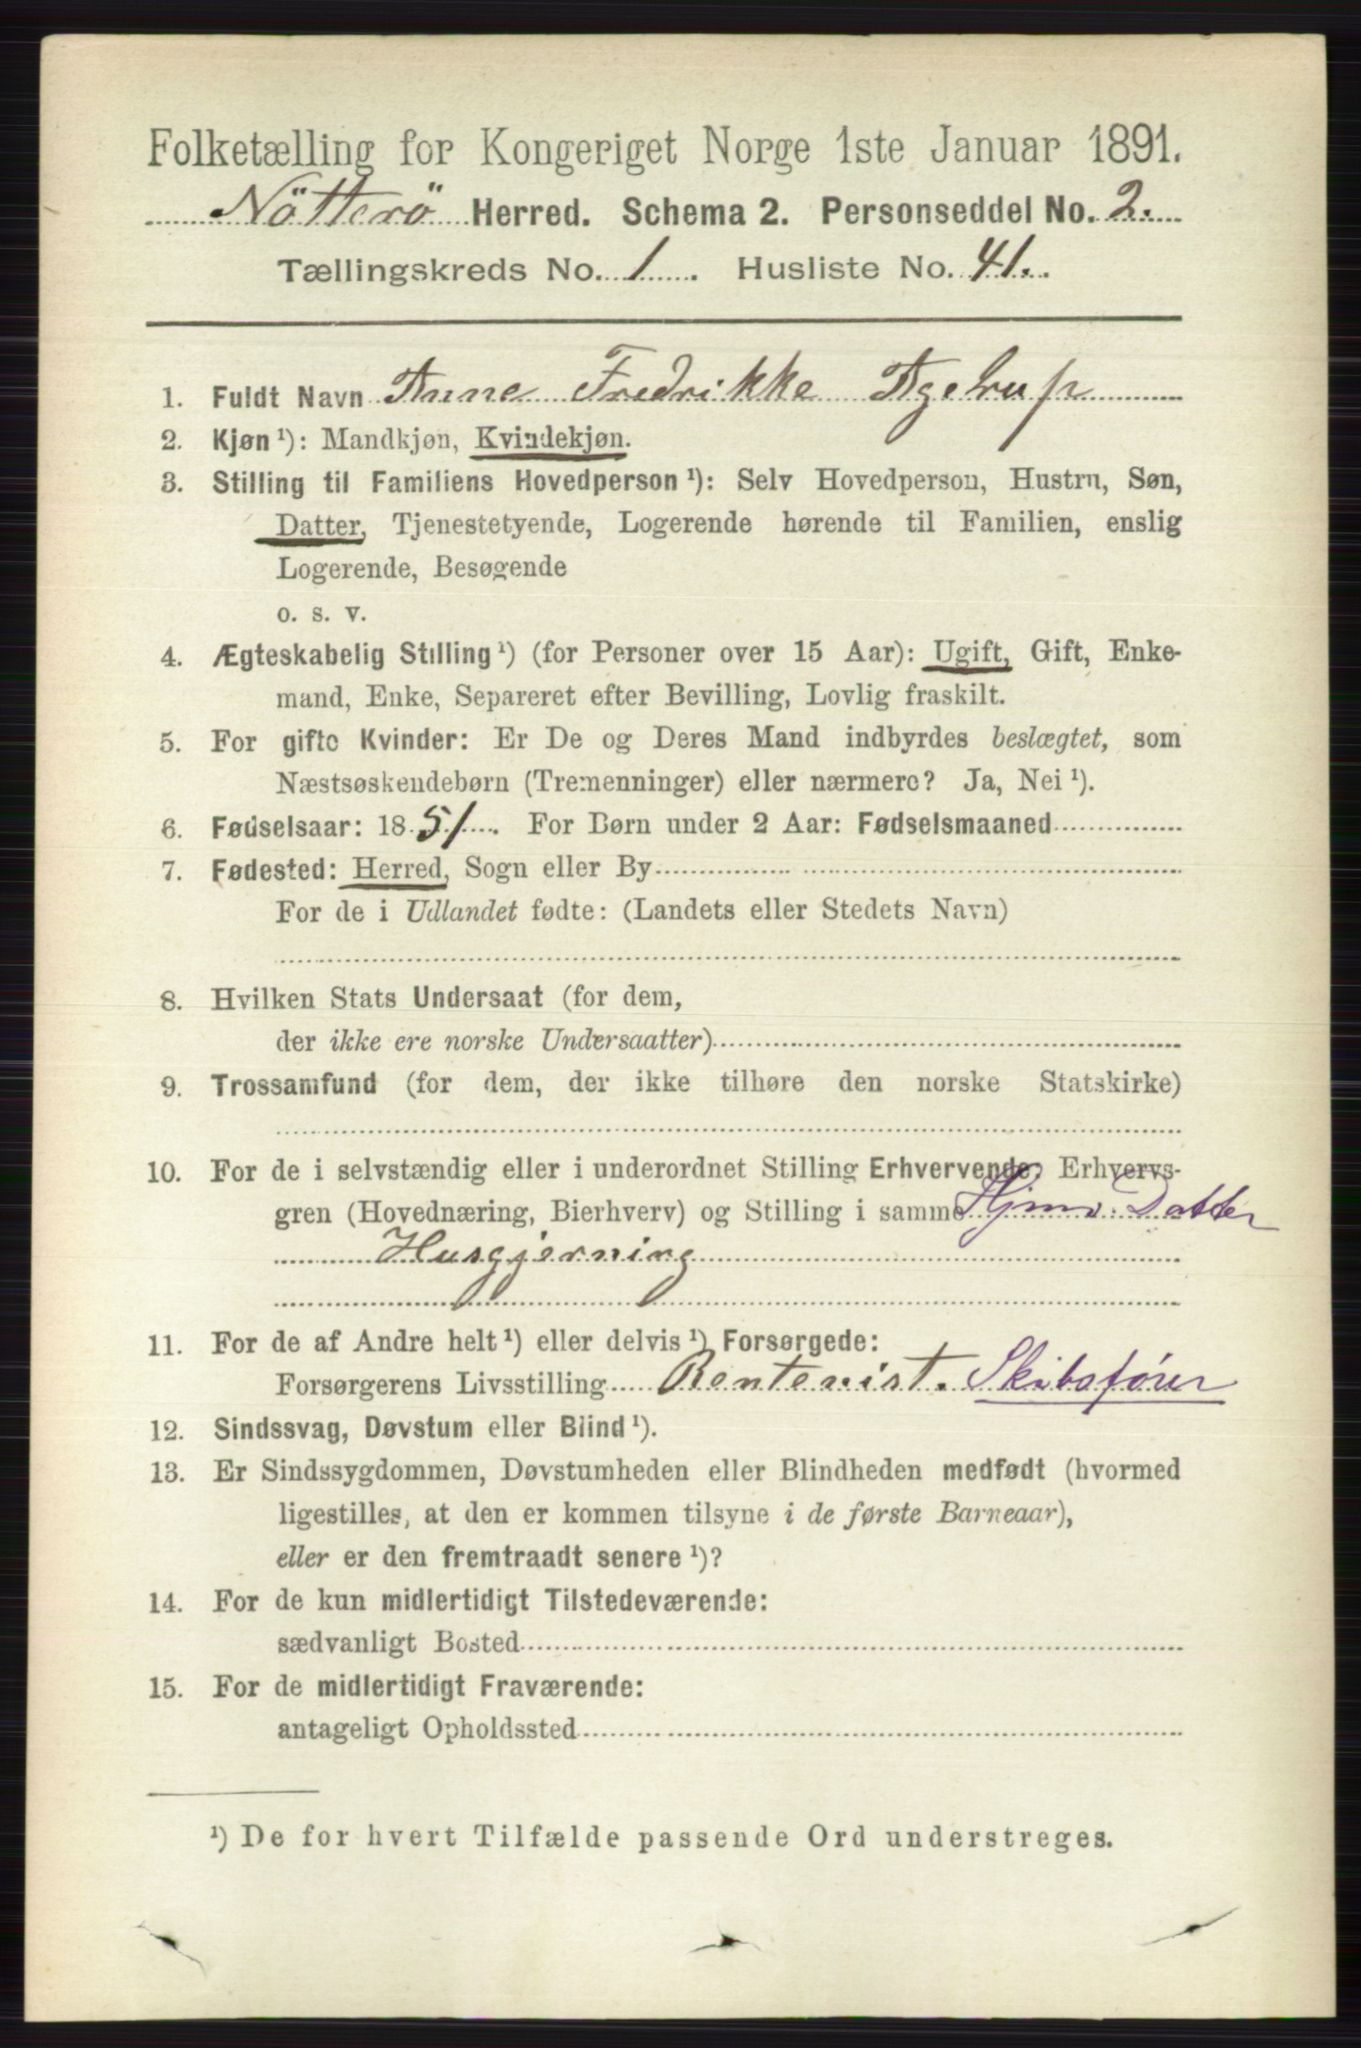 Folketælling for Kongeriget Norge 1ste Januar 1891.
Nötterö Herred. Schema 2. Personseddel No. 2.
Tællingskreds No. 1. Husliste No. 41.
1. Fuldt Navn Anne Fredrikke Agerup
2. Kjøn ¹): Mandkjøn, Kvindekjøn.
3. Stilling til Familiens Hovedperson ¹): Selv Hovedperson, Hustru, Søn,
Datter, Tjenestetyende, Logerende hørende til Familien, enslig
Logerende, Besøgende
o. s. v.
4. Ægteskabelig Stilling ¹) (for Personer over 15 Aar): Ugift, Gift, Enke-
mand, Enke, Separeret efter Bevilling, Lovlig fraskilt.
5. For gifte Kvinder: Er De og Deres Mand indbyrdes beslægtet, som
Næstsøskendebørn (Tremenninger) eller nærmere? Ja, Nei ¹).
6. Fødselsaar: 1851. For Børn under 2 Aar: Fødselsmaaned
7. Fødested: Herred, Sogn eller By
For de i Udlandet fødte: (Landets eller Stedets Navn)
8. Hvilken Stats Undersaat (for dem,
der ikke ere norske Undersaatter)
9. Trossamfund (for dem, der ikke tilhøre den norske Statskirke)
10. For de i selvstændig eller i underordnet Stilling Erhvervende: Erhvervs-
gren (Hovednæring, Bierhverv) og Stilling i samme Hjmv. Datter
Husgjerning
11. For de af Andre helt ¹) eller delvis ¹) Forsørgede:
Forsørgerens Livsstilling Rentenist. Skibsfører
12. Sindssvag, Døvstum eller Blind ¹).
13. Er Sindssygdommen, Døvstumheden eller Blindheden medfødt (hvormed
ligestilles, at den er kommen tilsyne i de første Barneaar),
eller er den fremtraadt senere ¹)?
14. For de kun midlertidigt Tilstedeværende:
sædvanligt Bosted
15. For de midlertidigt Fraværende:
antageligt Opholdssted
¹) De for hvert Tilfælde passende Ord understreges.